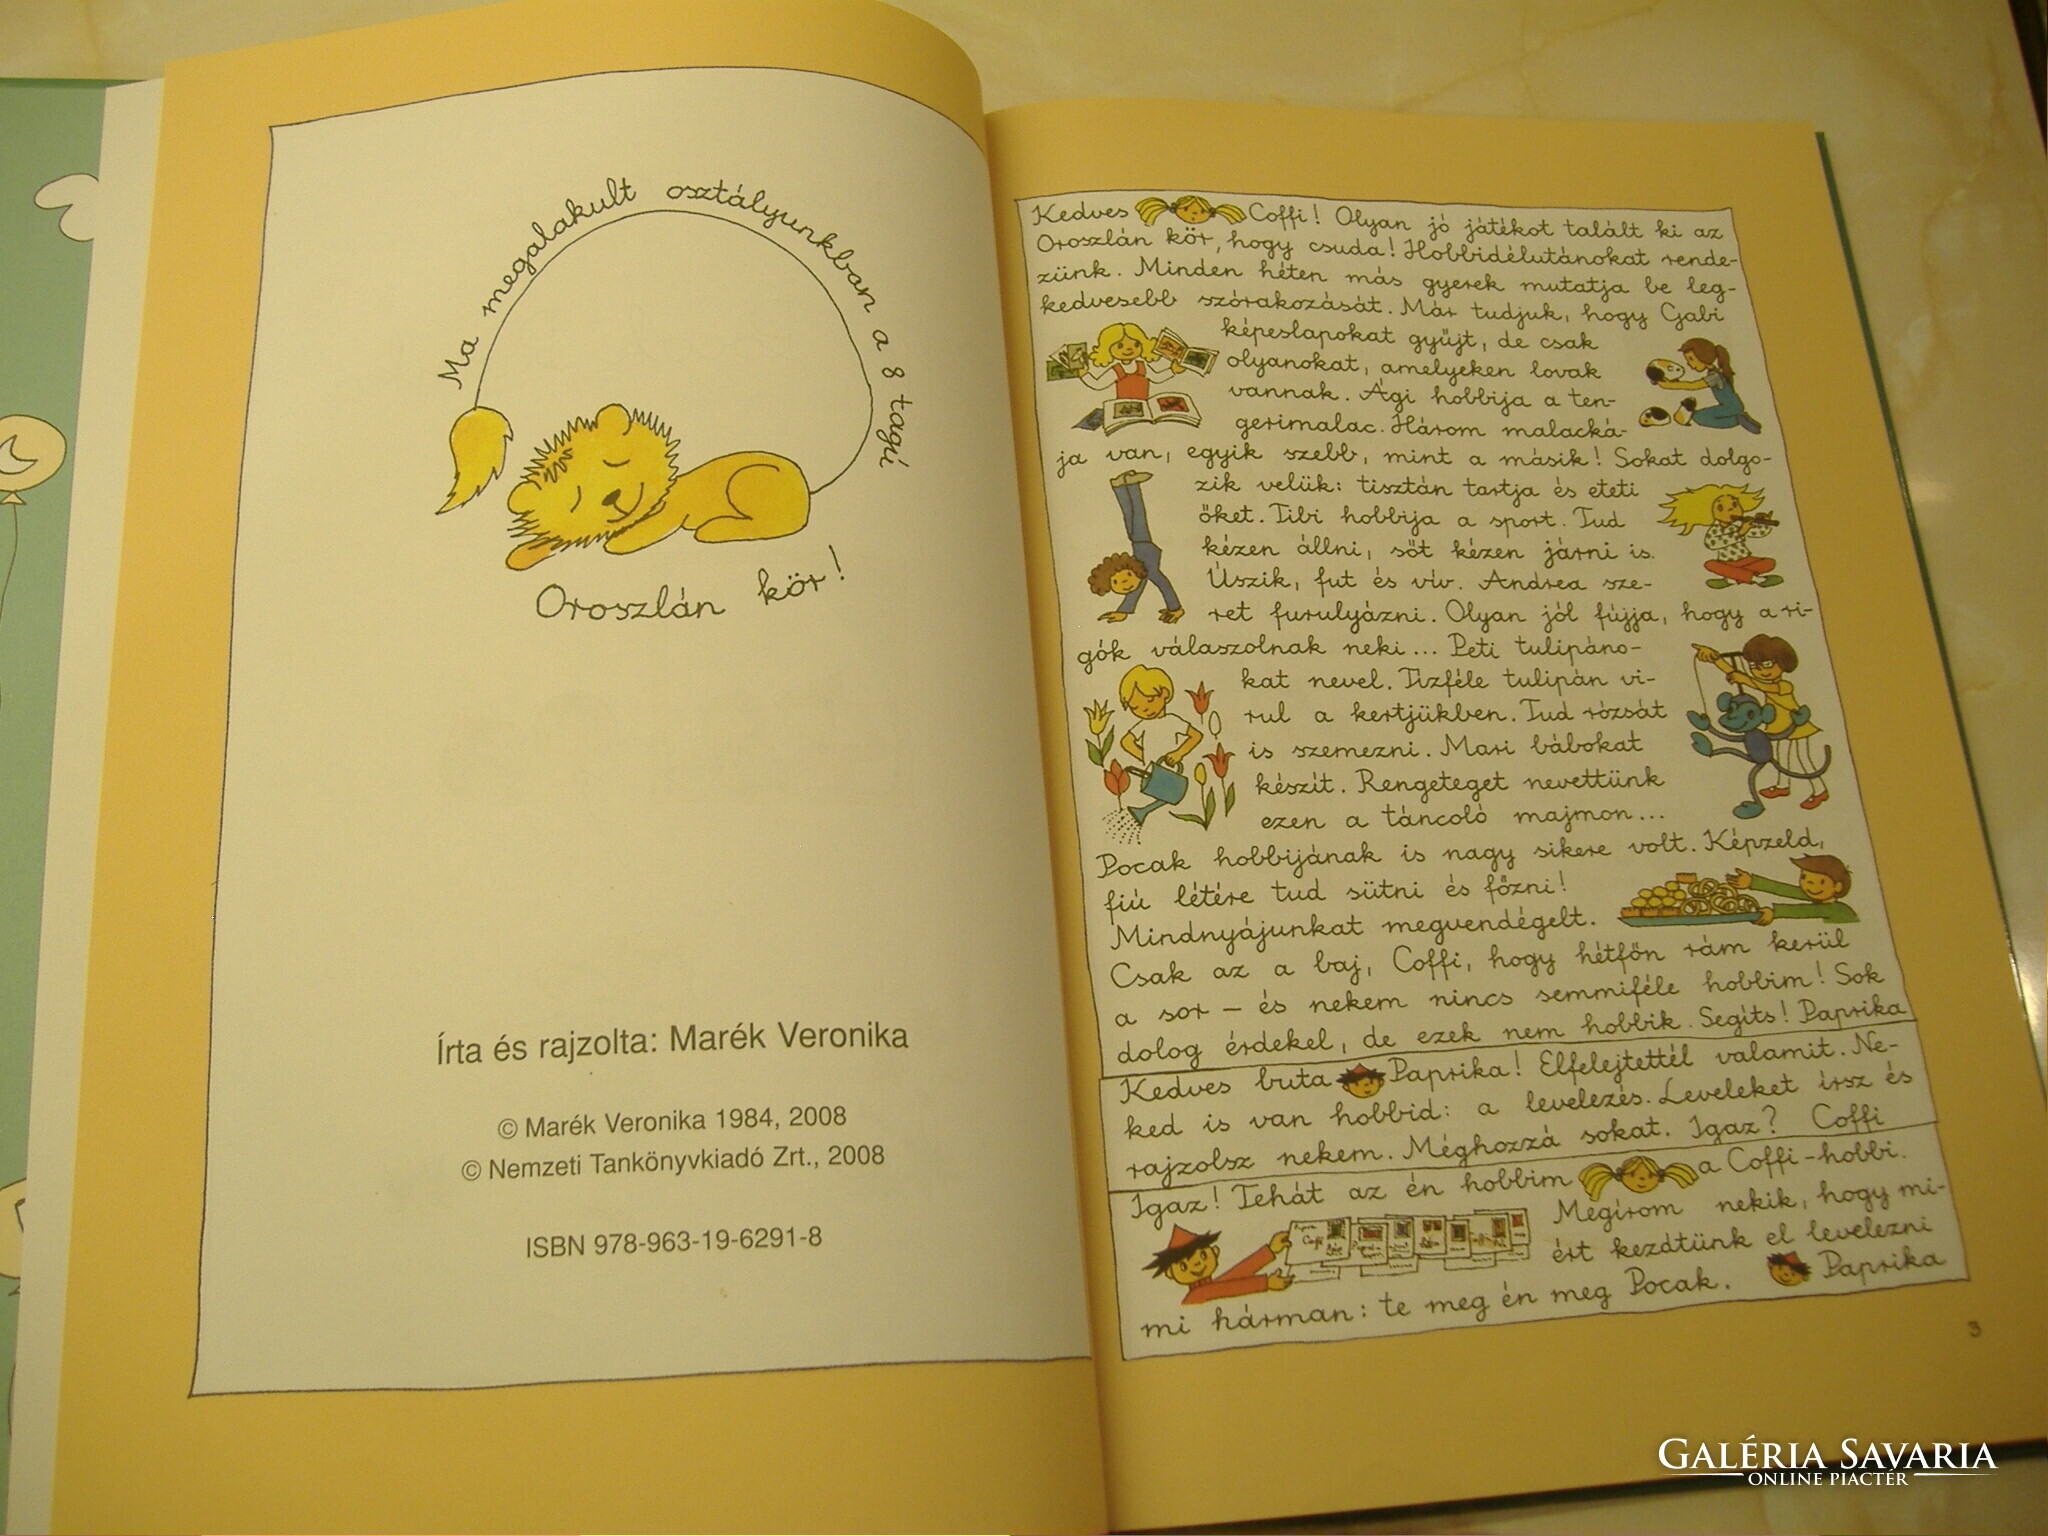 Ma megalakult osztályunkban a 8 tagú
Oroszlán kör!
Írta és rajzolta: Marék Veronika
© Marék Veronika 1984, 2008
© Nemzeti Tankönyvkiadó Zrt., 2008
ISBN 978-963-19-6291-8
Kedves Coffi! Olyan jó játékot talált ki az
Oroszlán kör, hogy csuda! Hobbidélutánokat rende-
zünk. Minden héten más gyerek mutatja be leg-
kedvesebb szórakozását. Már tudjuk, hogy Gabi
képeslapokat gyűjt, de csak
olyanokat, amelyeken lovak
vannak. Ági hobbija a ten-
gerimalac. Három malacká-
ja van, egyik szebb, mint a másik! Sokat dolgo-
zik velük: tisztán tartja és eteti
őket. Tibi hobbija a sport. Tud
kézen állni, sőt kézen járni is.
Úszik, fut és vív. Andrea sze-
ret furulyázni. Olyan jól fújja, hogy a ri-
gók válaszolnak neki... Peti tulipáno-
kat nevel. Tizféle tulipán vi-
rul a kertjükben. Tud rózsát
is szemezni. Mari bábokat
készít. Rengeteget nevettünk
ezen a táncoló majmon...
Pocak hobbijának is nagy sikere volt. Képzeld,
fiú létére tud sütni és főzni!
Mindnyájunkat megvendégelt.
Csak az a baj, Coffi, hogy hétfőn rám kerül
a sor – és nekem nincs semmiféle hobbim! Sok
dolog érdekel, de ezek nem hobbik. Segíts! Paprika
Kedves buta Paprika! Elfelejtettél valamit. Ne-
ked is van hobbid: a levelezés. Leveleket írsz és
rajzolsz nekem. Méghozzá sokat. Igaz? Coffi
Igaz! Tehát az én hobbim a Coffi-hobbi.
Megírom nekik, hogy mi-
ért kezdtünk el levelezni
mi hárman: te meg én meg Pocak. Paprika
3
GALÉRIA SAVARIA
ONLINE PIACTÉR